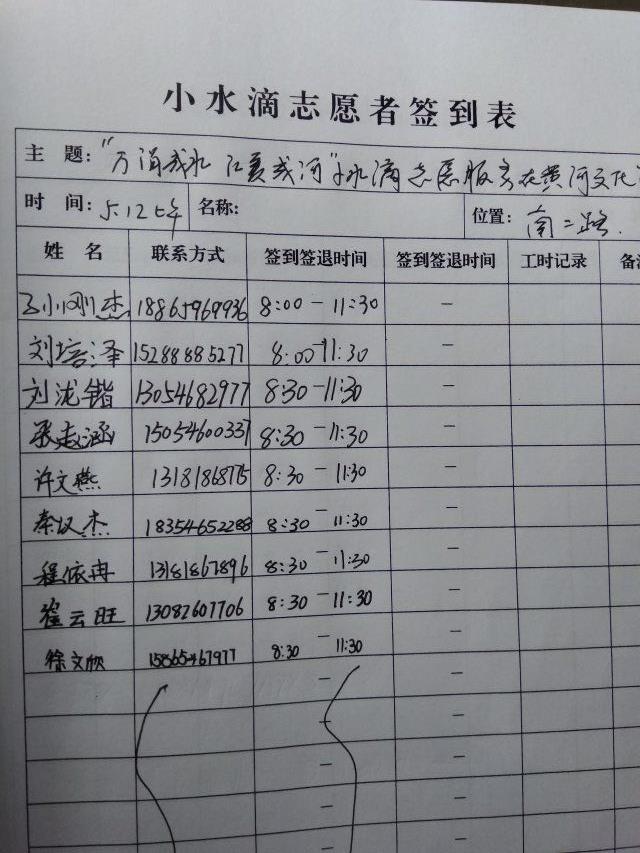 小水滴志愿者签到表
主 题: "万涓成水 汇聚成河"小水滴志愿服务在黄河文化
时 间: 5.12上午 名称: 位置: 南二路.
姓 名 联系方式 签到签退时间 签到签退时间 工时记录 备注
小刚杰 18865969936 8:00 - 11:30 -
刘培泽 15288885277 8:00 - 11:30 -
刘泷锴 13054682977 8:30 - 11:30 -
15054600331 8:30 - 11:30 -
许文燕 13181868775 8:30 - 11:30 -
秦汉杰 18354652288 8:30 - 11:30 -
程依冉 13181867896 8:30 - 11:30 -
崔云旺 13082607706 8:30 - 11:30 -
徐文欣 15865467977 8:30 - 11:30 -
- -
- -
- -
- -
- -